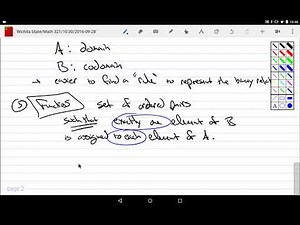 Wichita State/Math 321/10:30/2016-09-28
A: domain
B: codomain
→ easier to find a "rule" to represent the binary relat
⑤ Function set of ordered pairs
such that exactly one element of B
is assigned to each element of A.
page 2